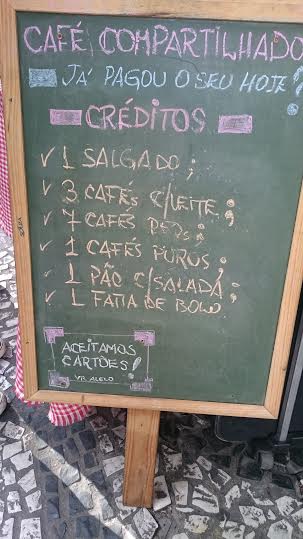 CAFÉ COMPARTILHADO
JÁ PAGOU O SEU HOJE?
CRÉDITOS
✓ 1 SALGADO;
✓ 3 CAFÉS C/LEITE;
✓ 7 CAFÉS PEQs;
✓ 1 CAFÉS PUROS;
✓ 1 PÃO C/SALADA;
✓ 1 FATIA DE BOLO.
ACEITAMOS
CARTÕES!
VR ALELO